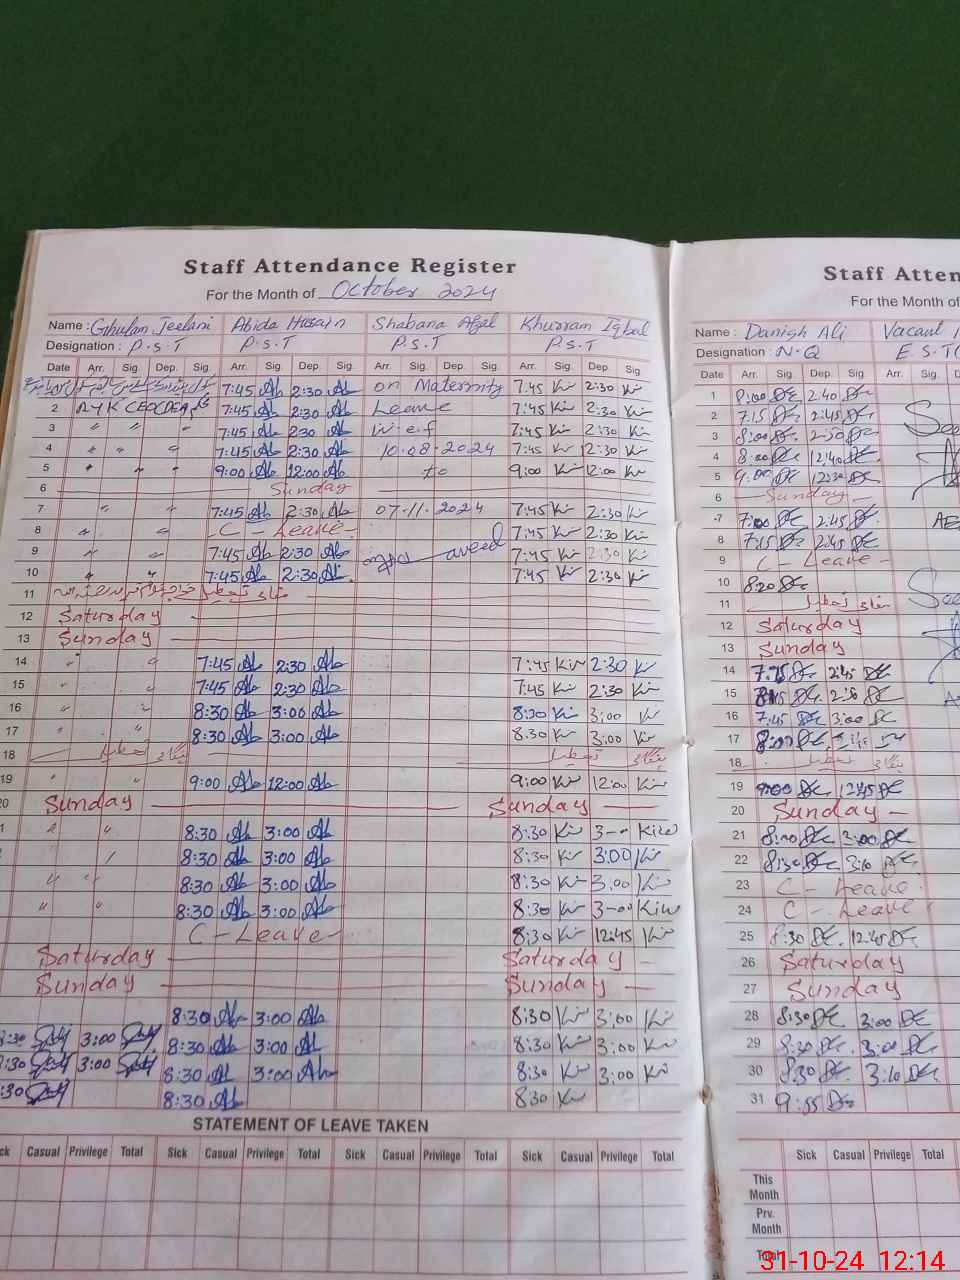 Staff Attendance Register
For the Month of October 2024
Name : Ghulam Jeelani Abida Husain Shabana Afzal Khurram Iqbal
Designation : P.S.T P.S.T P.S.T P.S.T
Date Arr. Sig. Dep. Sig. Arr. Sig. Dep. Sig. Arr. Sig. Dep. Sig. Arr. Sig. Dep. Sig.
7:45 Ab 2:30 Ab on Maternity 7:45 Ki 2:30 Ki
2 7:45 Ab 2:30 Ab Leave 7:45 Ki 2:30 Ki
3 " " " 7:45 Ab 2:30 Ab w.e.f 7:45 Ki 2:30 Ki
4 " " " 7:45 Ab 2:30 Ab 10.08.2024 7:45 Ki 2:30 Ki
5 " " " 9:00 Ab 12:00 Ab to 9:00 Ki 12:00 Ki
6 Sunday
7 " " 7:45 Ab 2:30 Ab 07.11.2024 7:45 Ki 2:30 Ki
8 " " C - Leave - 7:45 Ki 2:30 Ki
9 " " 7:45 Ab 2:30 Ab 7:45 Ki 2:30 Ki
10 " " 7:45 Ab 2:30 Ab 7:45 Ki 2:30 Ki
11 مقامی تعطیل
12 Saturday
13 Sunday
14 " " 7:45 Ab 2:30 Ab 7:45 Kiw 2:30 K
15 " " 7:45 Ab 2:30 Ab 7:45 Ki 2:30 Ki
16 " " 8:30 Ab 3:00 Ab 8:30 Ki 3:00 Ki
17 " " 8:30 Ab 3:00 Ab 8:30 Ki 3:00 Ki
18 مقامی تعطیل مقامی تعطیل
19 " " 9:00 Ab 12:00 Ab 9:00 Ki 12:00 Ki
20 Sunday Sunday
1 " " 8:30 Ab 3:00 Ab 8:30 Ki 3-00 Kiw
8:30 Ab 3:00 Ab 8:30 Ki 3:00 Ki
" " 8:30 Ab 3:00 Ab 8:30 Ki 3:00 Ki
" " 8:30 Ab 3:00 Ab 8:30 Ki 3-00 Kiw
C - Leave - 8:30 Ki 12:45 Ki
Saturday Saturday
Sunday Sunday
8:30 Ab 3:00 Ab 8:30 Ki 3:00 Ki
8:30 3:00 8:30 Ab 3:00 Ab 8:30 Ki 3:00 Ki
:30 3:00 8:30 Ab 3:00 Ab 8:30 Ki 3:00 Ki
:30 8:30 Ab 8:30 Ki
STATEMENT OF LEAVE TAKEN
ck Casual Privilege Total Sick Casual Privilege Total Sick Casual Privilege Total Sick Casual Privilege Total
Staff Atten
For the Month of
Name : Danish Ali Vacant
Designation : N.Q E.S.T
Date Arr. Sig. Dep. Sig. Arr. Sig. D
1 8:00 2:40
2 7:15 2:45
3 8:00 2:50
4 8:00 12:40
5 9:00 12:30
6 Sunday
7 7:00 2:45
8 7:15 2:45
9 C - Leave -
10 8:20
11 مقامی تعطیل
12 Saturday
13 Sunday
14 7:75 2:45
15 2:30
16 7:45 3:00
17 8:00
18 مقامی تعطیل
19 9:00 12:45
20 Sunday -
21 8:00 3:00
22 8:30 3:10
23 C - Leave
24 C - Leave
25 8:30 12:45
26 Saturday
27 Sunday
28 8:30 3:00
29 8:30 3:00
30 8:30 3:10
31 9:55
Sick Casual Privilege Total
This Month
Prv. Month
Total
31-10-24 12:14